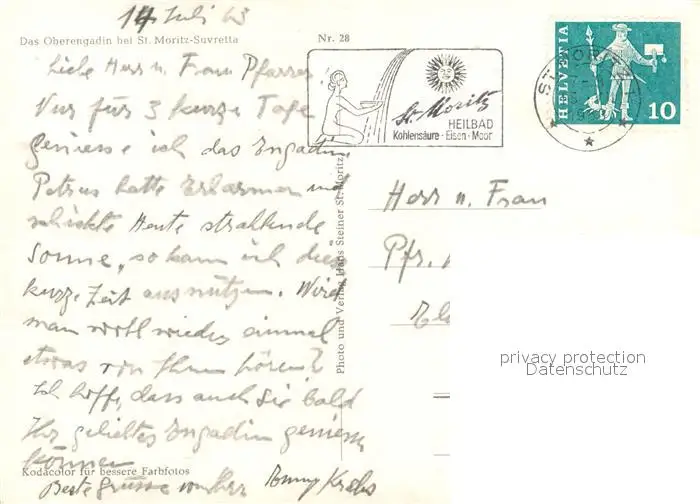 14 Juli 63
Das Oberengadin bei St. Moritz-Suvretta
Nr. 28
Liebe Herr u. Frau Pfarrer!
Nur für 3 kurze Tage
geniesse ich das Engadin
Petrus hatte Erbarmen und
schickte Heute strahlende
Sonne, so kann ich diese
kurze Zeit ausnützen. Wird
man wohl wieder einmal
etwas von Ihnen hören?
Ich hoffe, dass auch Sie bald
Ihr geliebtes Engadin geniessen
können
Kodacolor für bessere Farbfotos
Beste Grüsse von Ihrer
Photo und Verlag Hans Steiner St. Moritz
St. Moritz
HEILBAD
Kohlensäure · Eisen · Moor
HELVETIA
10
Herr u. Frau
Pfr.
privacy protection
Datenschutz